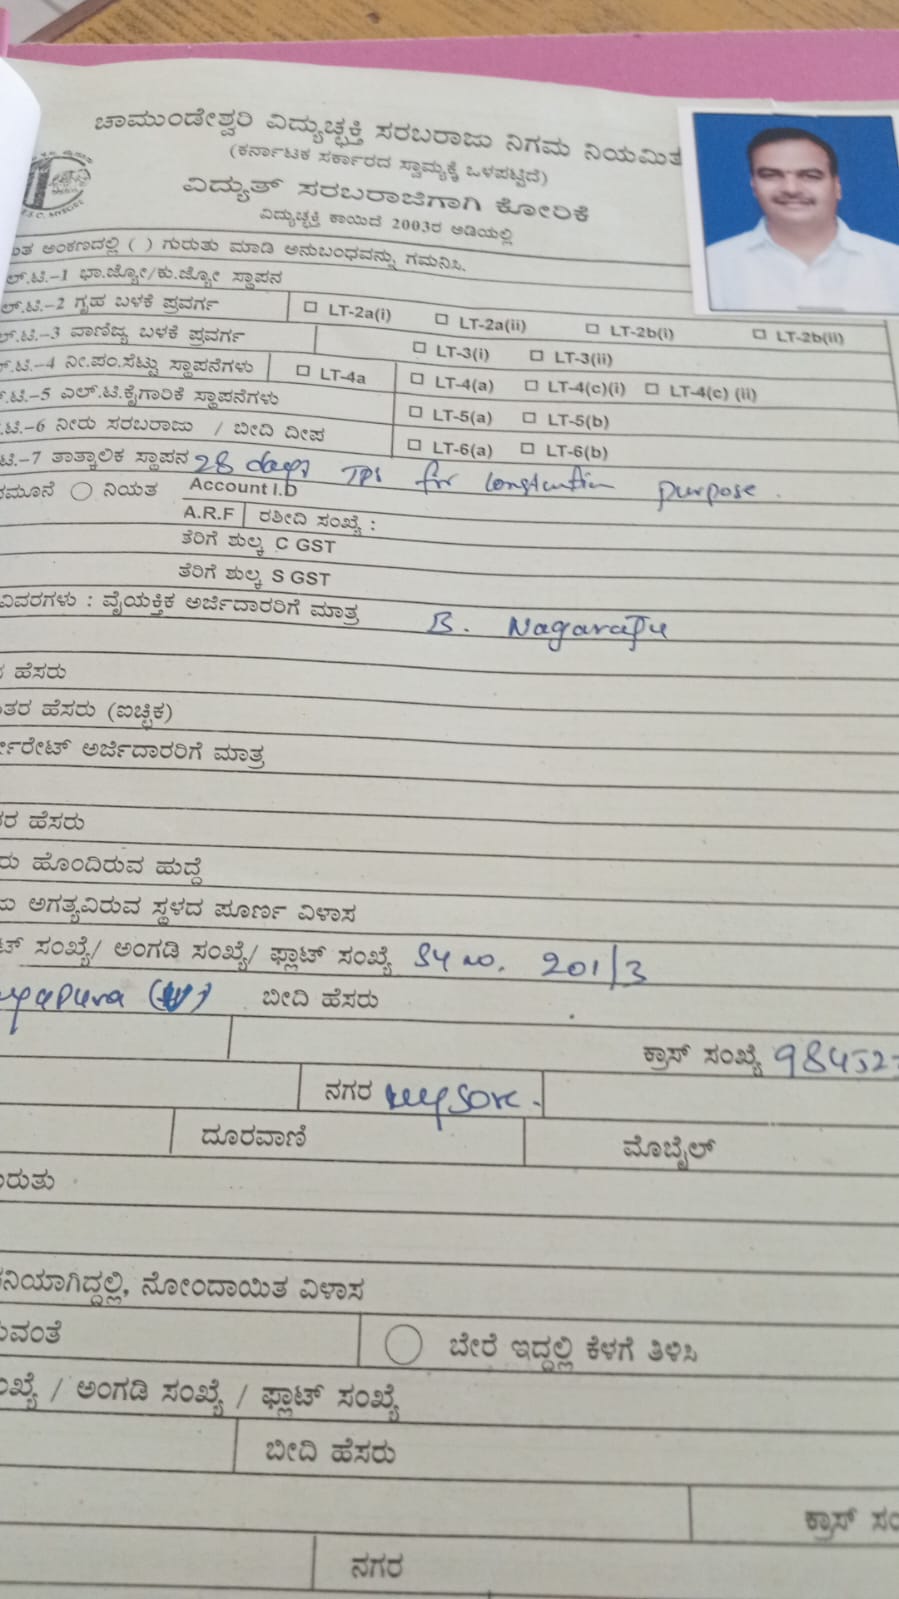 ಚಾಮುಂಡೇಶ್ವರಿ ವಿದ್ಯುಚ್ಛಕ್ತಿ ಸರಬರಾಜು ನಿಗಮ ನಿಯಮಿತ
(ಕರ್ನಾಟಕ ಸರ್ಕಾರದ ಸ್ವಾಮ್ಯಕ್ಕೆ ಒಳಪಟ್ಟಿದೆ)
ವಿದ್ಯುತ್ ಸರಬರಾಜಿಗಾಗಿ ಕೋರಿಕೆ
ವಿದ್ಯುಚ್ಛಕ್ತಿ ಕಾಯಿದೆ 2003ರ ಅಡಿಯಲ್ಲಿ
ಅಂಕಣದಲ್ಲಿ ( ) ಗುರುತು ಮಾಡಿ ಅನುಬಂಧವನ್ನು ಗಮನಿಸಿ.
ಲ್.ಟಿ.-1 ಭಾ.ಜ್ಯೋ/ಕು.ಜ್ಯೋ ಸ್ಥಾಪನ
ಲ್.ಟಿ.-2 ಗೃಹ ಬಳಕೆ ಪ್ರವರ್ಗ LT-2a(i) LT-2a(ii) LT-2b(i) LT-2b(ii)
ಲ್.ಟಿ.-3 ವಾಣಿಜ್ಯ ಬಳಕೆ ಪ್ರವರ್ಗ LT-3(i) LT-3(ii)
್.ಟಿ.-4 ನೀ.ಪಂ.ಸೆಟ್ಟು ಸ್ಥಾಪನೆಗಳು LT-4a LT-4(a) LT-4(c)(i) LT-4(c) (ii)
.ಟಿ.-5 ಎಲ್.ಟಿ.ಕೈಗಾರಿಕೆ ಸ್ಥಾಪನೆಗಳು LT-5(a) LT-5(b)
.ಟಿ.-6 ನೀರು ಸರಬರಾಜು / ಬೀದಿ ದೀಪ LT-6(a) LT-6(b)
ಟಿ.-7 ತಾತ್ಕಾಲಿಕ ಸ್ಥಾಪನ 28 days TPS for purpose.
ನಮೂನೆ ನಿಯತ Account I.D
A.R.F ರಶೀದಿ ಸಂಖ್ಯೆ :
ತೆರಿಗೆ ಶುಲ್ಕ C GST
ತೆರಿಗೆ ಶುಲ್ಕ S GST
ವಿವರಗಳು : ವೈಯಕ್ತಿಕ ಅರ್ಜಿದಾರರಿಗೆ ಮಾತ್ರ B. Nagaraju
ಹೆಸರು
ತರ ಹೆಸರು (ಐಚ್ಛಿಕ)
ರ್ಪೊರೇಟ್ ಅರ್ಜಿದಾರರಿಗೆ ಮಾತ್ರ
ರ ಹೆಸರು
ರು ಹೊಂದಿರುವ ಹುದ್ದೆ
ಅಗತ್ಯವಿರುವ ಸ್ಥಳದ ಪೂರ್ಣ ವಿಳಾಸ
ಟ್ ಸಂಖ್ಯೆ/ ಅಂಗಡಿ ಸಂಖ್ಯೆ/ ಫ್ಲಾಟ್ ಸಂಖ್ಯೆ Sy no. 201/3
yapura (V) ಬೀದಿ ಹೆಸರು
ಕ್ರಾಸ್ ಸಂಖ್ಯೆ 98452
ನಗರ mysore.
ದೂರವಾಣಿ ಮೊಬೈಲ್
ರುತು
ನಿಯಾಗಿದ್ದಲ್ಲಿ, ನೋಂದಾಯಿತ ವಿಳಾಸ
ುವಂತೆ ಬೇರೆ ಇದ್ದಲ್ಲಿ ಕೆಳಗೆ ತಿಳಿಸಿ
ಂಖ್ಯೆ / ಅಂಗಡಿ ಸಂಖ್ಯೆ / ಫ್ಲಾಟ್ ಸಂಖ್ಯೆ
ಬೀದಿ ಹೆಸರು
ಕ್ರಾಸ್ ಸಂ
ನಗರ